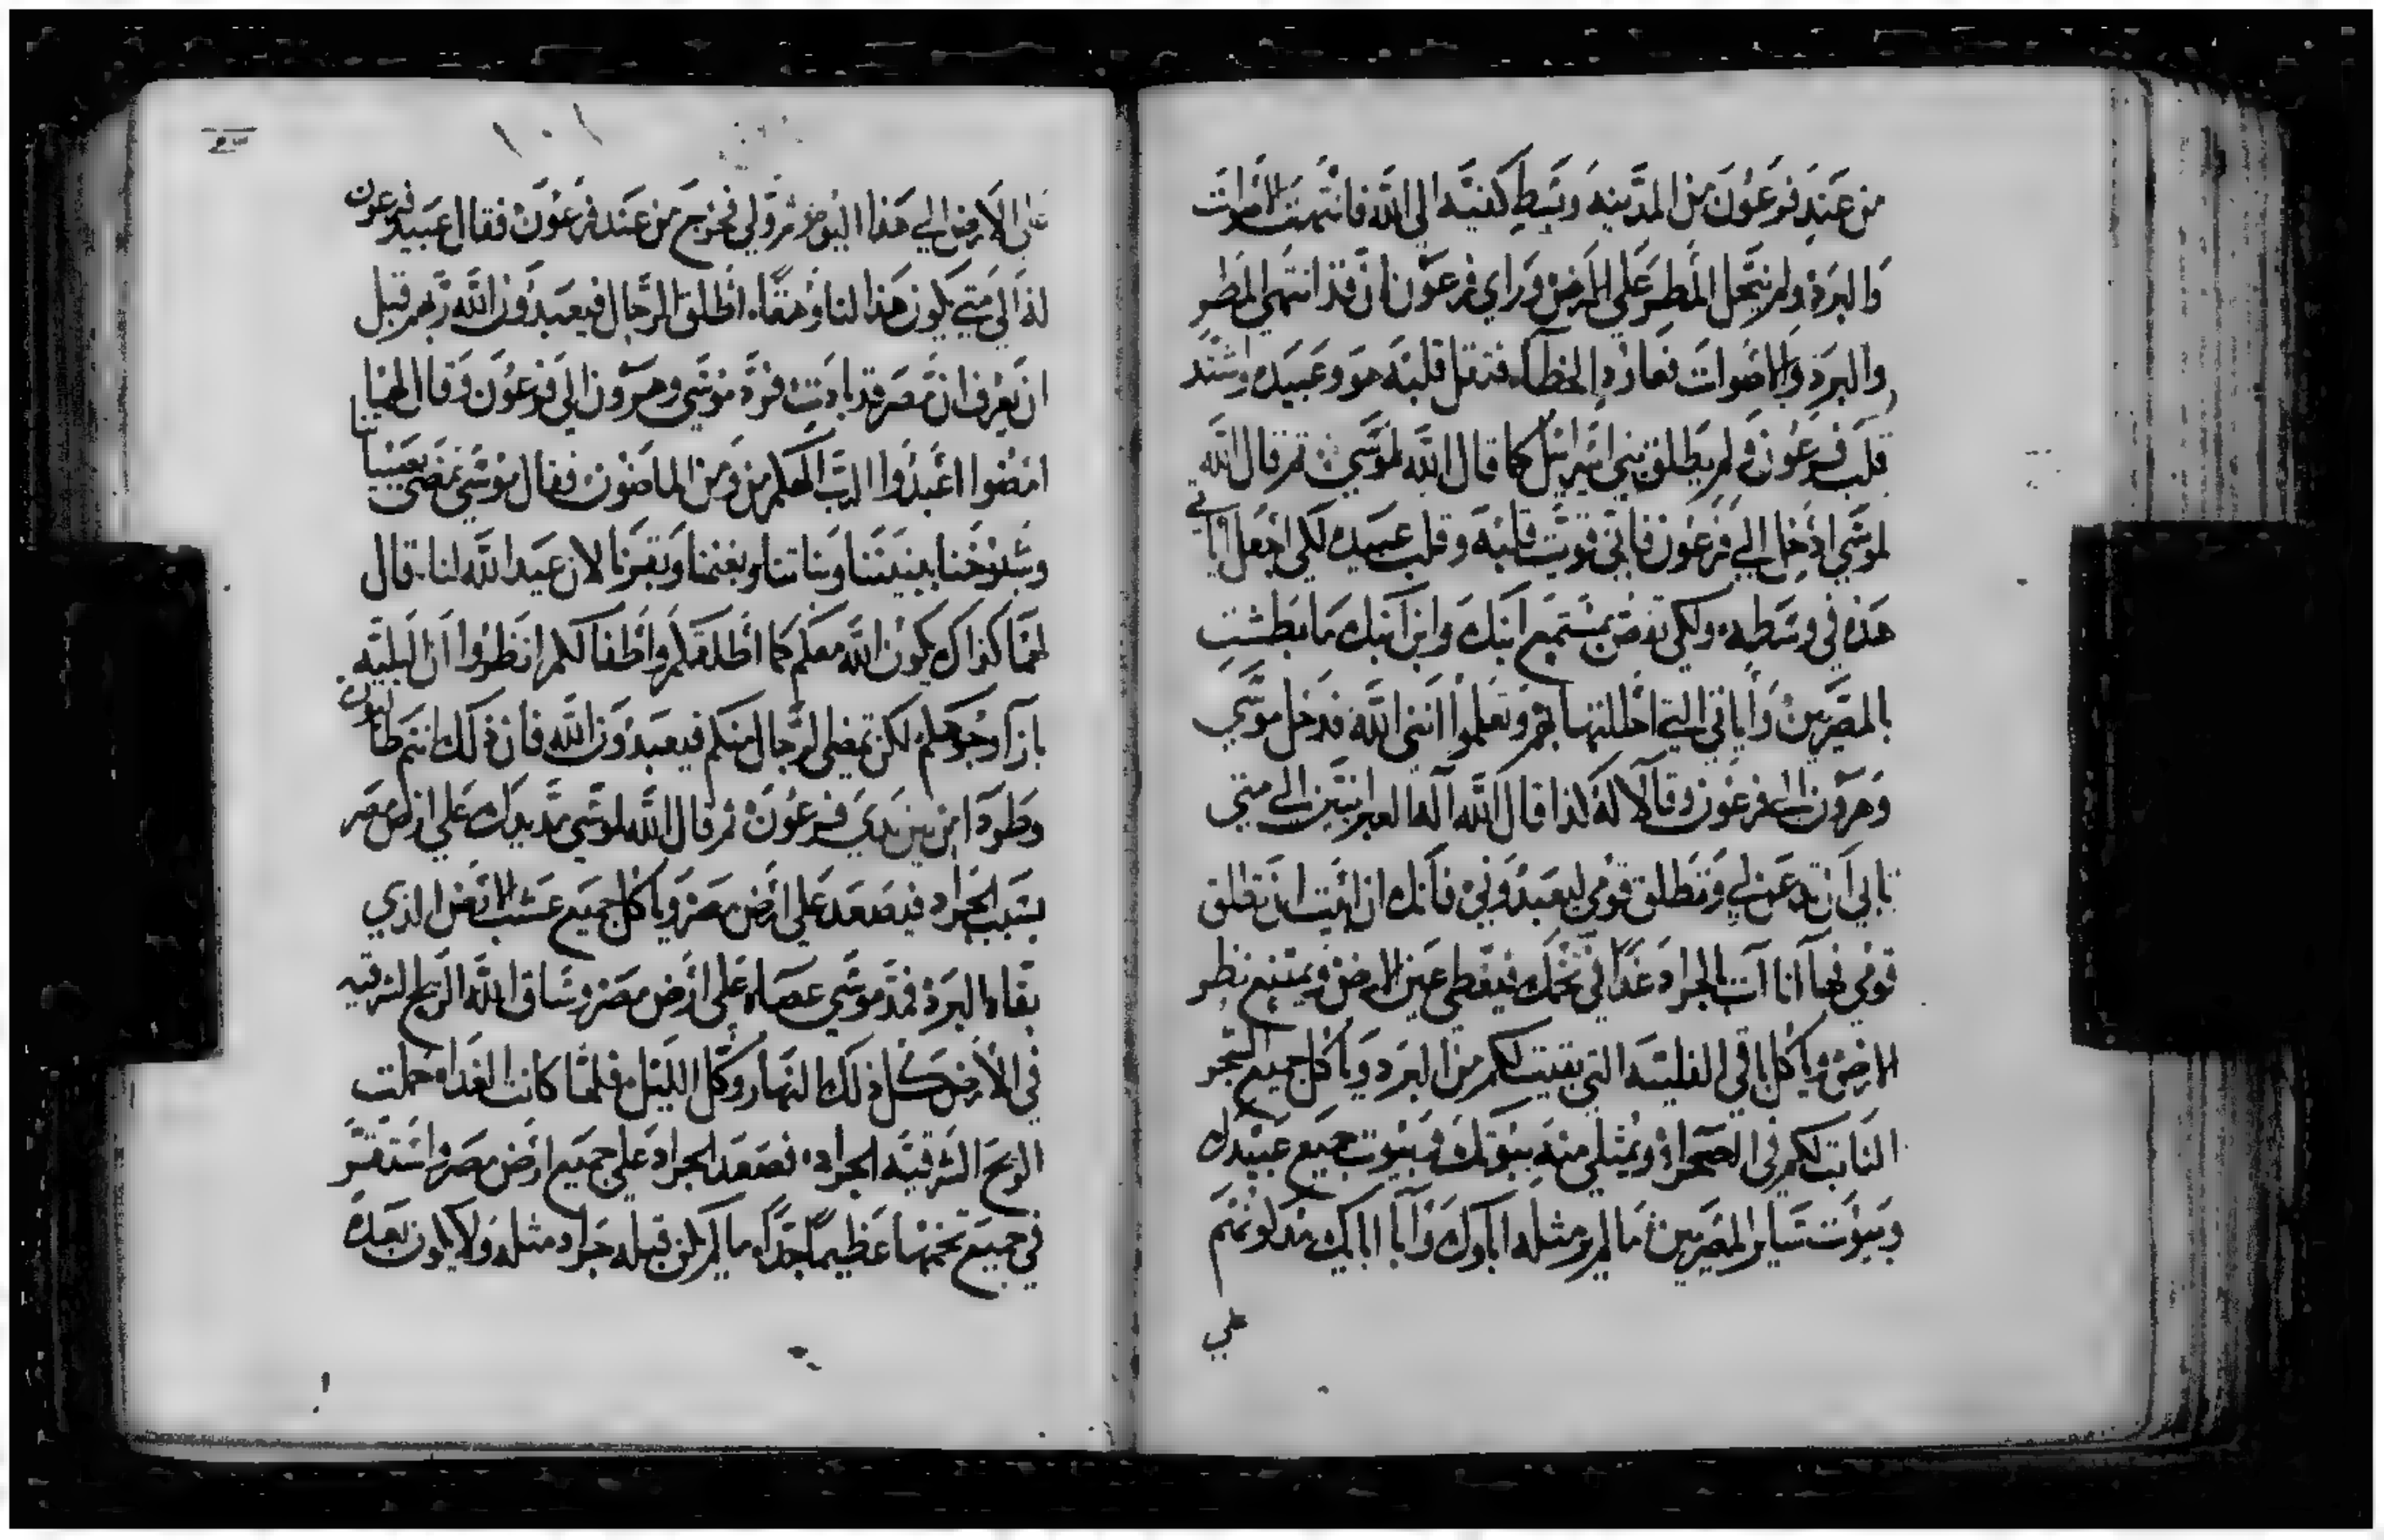 من عند فرعون من المدينه وبسط كفيه الي الله فانتهت الاصوات
والبرد ولم ينحل المطر علي الارض وراي فرعون ان قد انتهي المطر
والبرد والاصوات فعاود الخطا فثقل قلبه هو وعبيده واشتد
قلب فرعون ولم يطلق بني اسرايل كما قال الله لموسي ثم قال الله
لموسي ادخل الي فرعون فاني قويت قلبه وقلب عبيده لكي اجعل اياتي
هذه في وسطه ولكي تقص بمستمع ابنك وابن ابنك ما بطشت
بالمصريين واياتي التي احللتها بهم وتعلموا انني الله فدخل موسي
وهرون الي فرعون وقالا له كذا قال الله اله العبرانيين الي متي
تابي ان تدعن لي وتطلق قومي ليعبدوني فانك ان ابيت ان تطلق
قومي فها انا آت بالجراد غدا في تخمك فيغطي عين الارض ويمتنع نظر
الارض وياكل باقي الفليته التي بقيت لكم من البرد وياكل جميع الشجر
النابت لكم في الصحراء ويمتلي منه بيوتك وبيوت جميع عبيدك
وبيوت ساير المصريين ما لم ير مثله اباوك وابا اباىك مذ كونهم
علي
١٠١
علي الارض الي هذا اليوم ثم ولي فخرج من عند فرعون فقال عبيد فرعون
له الي متي يكون هذا لنا وهقا اطلق الرجال فيعبدون الله ربهم قبل
ان تعرف ان مصر قد بادت فرد موسي وهرون الي فرعون وقال لهما
امضوا اعبدوا الرب الهكم من ومن الماضون فقال موسي نمضي بصبياننا
وشيوخنا ببنيننا وبناتنا وبغنمنا وبقرنا لان عيد الله لنا قال
لهما كذاك يكون الله معكم كما اطلقكم واطفالكم انظروا ان البليه
بازا وجوهكم لكن تمضي الرجال منكم فيعبدون الله فان ذلك انتم طالبون
وطردا من بين يدي فرعون ثم قال الله لموسي مد يدك علي ارض مصر
بسبب الجراد فيصعد علي ارض مصر وياكل جميع عشب الارض الذي
بقاه البرد فمد موسي عصاه علي ارض مصر وساق الله الريح الشرقيه
في الارض كل ذلك النهار وكل الليل فلما كانت الغداه حملت
الريح الشرقيه الجراد فصعد الجراد علي جميع ارض مصر واستقر
في جميع تخمها عظيما جدا ما لم يكن قبله جراد مثله ولا يكون بعده